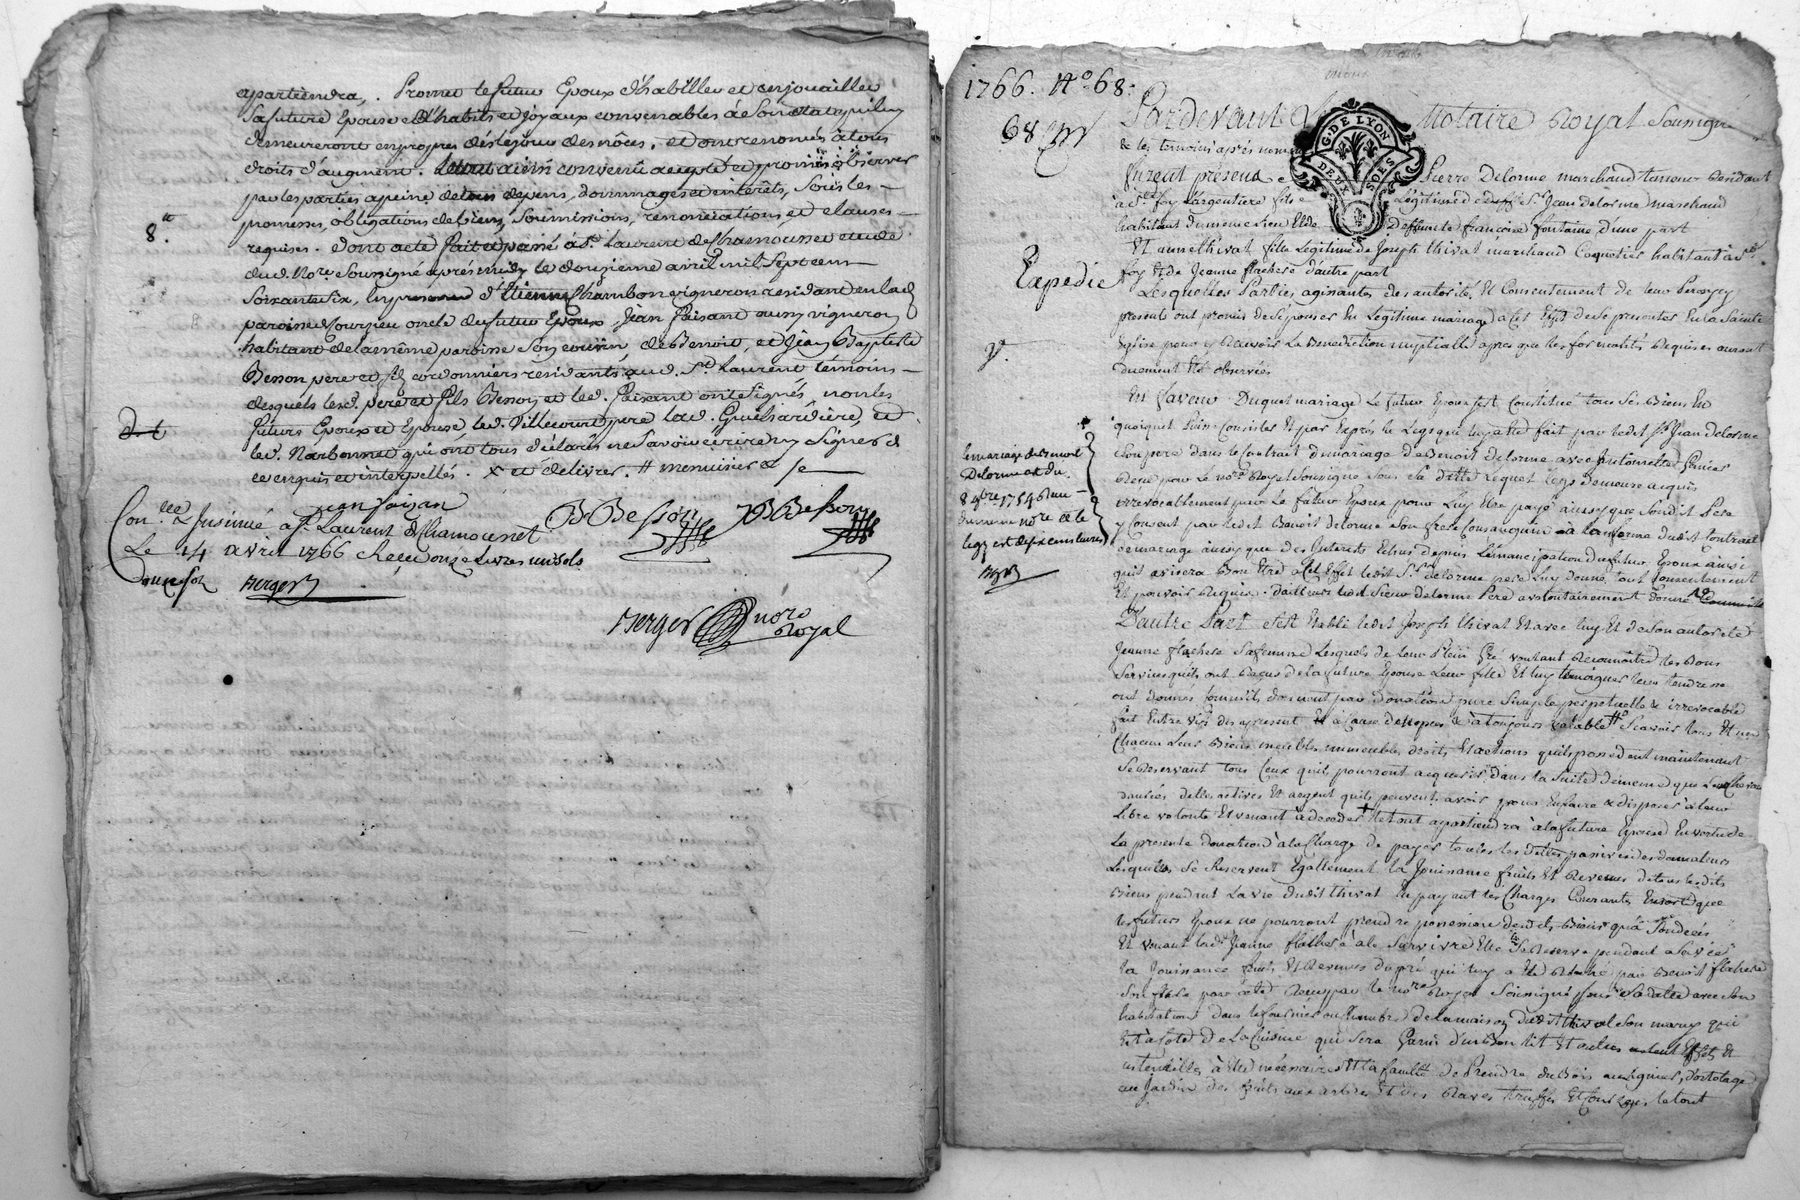 apartiendra, . Promet le futur Epoux d'habiller et enjouailler
sa future Epouse d'habits et joyaux convenables à son état qui luy
demeureront en propres dès le jour des nôces, et ont renoncés à tous
droits d'augment. ainsi convenu accepté et promis observer
par les parties a peine de tous depens, dommages et interêts, sous les
promesses, obligations de biens, soumissions, renonciations et clauses
8.
requises. dont acte fait et passé à St. Laurent de Chamousset etude
dud. Nore. soussigné après midy le douzieme avril mil sept cent
soixante six, en presence d'Etienne Chambon vigneron residant en lad.
paroisse oncle du futur Epoux, Jean Paisant aussy vigneron
habitant de la même paroisse son cousin et Jean Baptiste
Besson pere et fils cordonniers residants aud. St. Laurent témoins
desquels led. pere et fils Besson et led. Paisant ont signés, non les
futurs Epoux et Epouse led. Villecourt pere lad. Guichardiere, et
led. Narbonnet qui ont tous déclarés ne savoir écrire ny signer de
ce enquis et interpellés. x et delivrer. # menuisier
jean paisan
B Besson JB Besson
Con.lé & Insinué a St. Laurent de Chamousset
Le 14 avril 1766 Reçu onze Livres
douze sols Berger
Berger nore
Royal
1766. No. 68.
68
Pardevant Notaire Royal soussigné
G. DE LYON
DEUX SOLS
& les temoins après nommés
furent présens Pierre Delorme marchand tanneur Residant
a Ste. foy L'argentiere fils Légitime de Sr. Jean delorme marchand
habitant du meme Lieu Et de Deffunte francoise fontaine d'une part
Et anne thivat fille Legitime de Joseph thivat marchand Coquetier habitant a Ste.
foy Et de Jeanne flachere d'autre part
Expedié
Lesquelles Parties agissantes des autorité Et Consentement de leur Peres cy
presents ont promis de s'epouser En Legitime mariage a cet Effet de se presenter En la Sainte
Eglise pour y Recevoir La Benediction nuptialle apres que les formalités Requises auront
duement Eté observées
En faveur Duquel mariage Le futur Epoux s'est Constitué tous ses Biens En
quoi qu'ils puisse Consister Et par Exprès le Legs que luy a Eté fait par ledit Sr. Jean delorme
son pere dans le Contrait du mariage de Benoit delorme avec Antoinette
Recu par le Nore Royal soussigné sous sa datte lequel legs demeure acquis
irrevocablement par le futur Epoux pour Luy Etre payé aussy que Son dit Pere
y Consent par ledit Benoit delorme son frere Consanguin a la forme dudit Contrait
de mariage aussy que des Interets Echus depuis L'emancipation du futur Epoux ainsi
qu'il avisera Bon Etre a cet Effet ledit Sr. delorme pere Luy donne tout Consentement
Et pouvoir Requis. d'ailleurs ledit Sieur delorme Pere a volontairement
le mariage de Benoit
Delorme est du
8 9bre 1754
du meme nore et le
legs est de six cens livres
D'autre Part s'est Etabli ledit Joseph thivat Et avec luy Et de Son autorité
Jeanne flachere Sa femme Lesquels de leur Plein Gré voulant Reconnoitre les Bons
Services qu'ils ont Recus de la future Epouse Leur fille Et luy temoigner leur tendresse
ont donnés Comme ils donnent par donation pure Simple perpetuelle & irrevocable
fait Entre vifs des apresent Et a Cause de Noces & a toujours valable # Scavoir tous Et un
Chacun Leurs Biens meubles immeubles droits Et actions qu'ils possedent maintenant
Se Reservant tous Ceux qu'ils pourront acquerir dans la Suite de meme que
denrées dettes actives Et argent qu'ils peuvent avoir pour En faire & disposer a leur
Libre volonté Et venant à deceder Le tout apartiendra à la future Epouse En vertu de
La presente donation à la Charge de payer toutes les dettes passives des donateurs
Lesquels se Reservent Egallement la Jouissance fruits Et Revenus de tous lesdits
Biens pendant La vie dudit thivat En payant les Charges Courantes Ensorte que
les futurs Epoux ne pourront prendre possession desdits Biens qu'a Son deces
Et venant ladt. Jeanne flachere à le Survivre Elle Se Reserve pendant sa vie
La Jouissance fruits Et Revenus du pré qui luy a Eté par Benoit flachere
Son frere par acte Recu par le nore Royal Soussigné sous sa datte avec Son
habitation dans la Chambre de la maison dudit thivat Son mary qui
Est à Coté de la Cuisine qui Sera Garni d'un Bon lit Et autres Effets Et
ustencilles à Elle nécessaires Et la faculté de Prendre du Bois au Ligner, d'ortolage
au Jardin des fruits aux arbres Et des Raves truffes Et Courges le tout